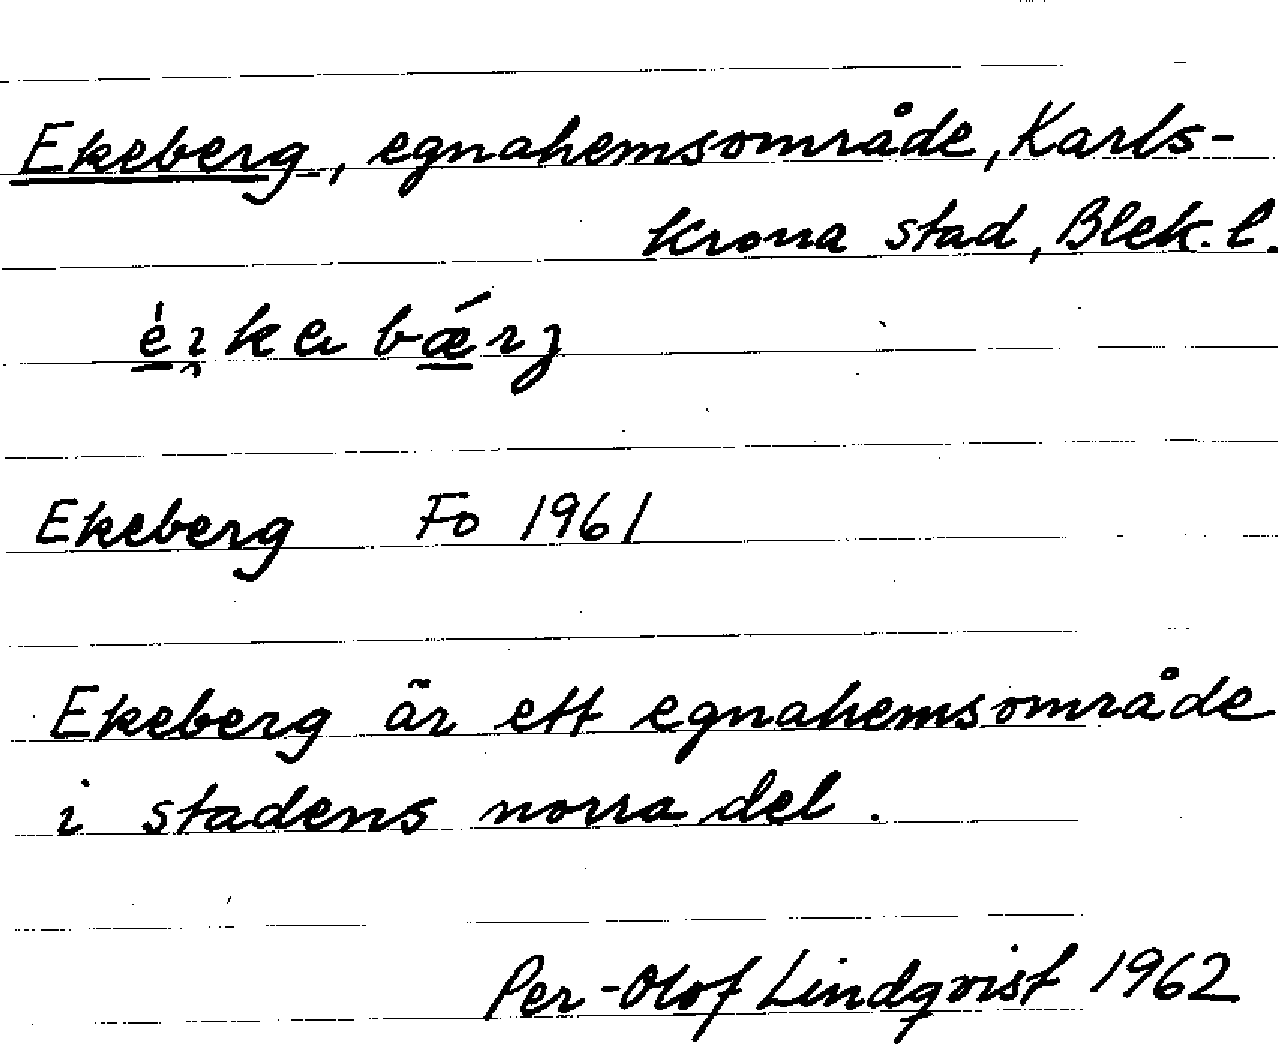 Ekeberg, egnahemsområde, Karls-
krona stad, Blek. l.
èi̯kabǽrʒ
Ekeberg Fo 1961
Ekeberg är ett egnahemsområde
i stadens norra del.
Per-Olof Lindqvist 1962